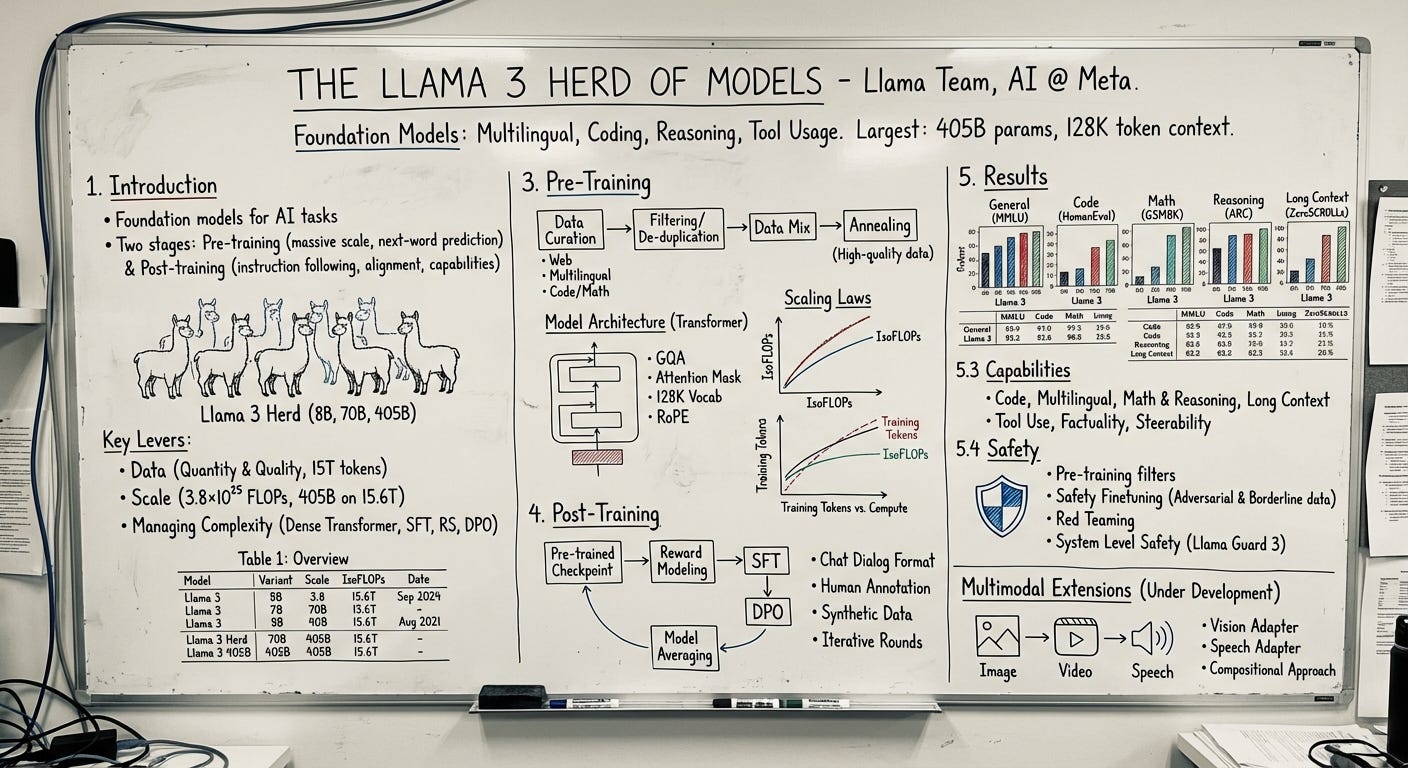 THE LLAMA 3 HERD OF MODELS – Llama Team, AI @ Meta.
Foundation Models: Multilingual, Coding, Reasoning, Tool Usage. Largest: 405B params, 128K token context.
1. Introduction
• Foundation models for AI tasks
• Two stages: Pre-training (massive scale, next-word prediction)
& Post-training (instruction following, alignment, capabilities)
Llama 3 Herd (8B, 70B, 405B)
Key Levers:
• Data (Quantity & Quality, 15T tokens)
• Scale (3.8×10²⁵ FLOPs, 405B on 15.6T)
• Managing Complexity (Dense Transformer, SFT, RS, DPO)
Table 1: Overview
Model Variant Scale IsoFLOPs Date
Llama 3 3.8 15.6T Sep 2024
Llama 3 70B 13.6T –
Llama 3 40B 15.6T Aug 2021
Llama 3 Herd 70B 405B 15.6T –
Llama 3 405B 405B 405B 15.6T –
3. Pre-Training
Data Curation
Filtering/ De-duplication
Data Mix
Annealing
(High-quality data)
• Web
• Multilingual
• Code/Math
Model Architecture (Transformer)
• GQA
• Attention Mask
• 128K Vocab
• RoPE
Scaling Laws
IsoFLOPs
IsoFLOPs
IsoFLOPs
Training
Training
Tokens
IsoFLOPs
Training Tokens vs. Compute
4. Post-Training
Pre-trained Checkpoint
Reward Modeling
SFT
DPO
Model Averaging
• Chat Dialog Format
• Human Annotation
• Synthetic Data
• Iterative Rounds
5. Results
General
(MMLU)
Code
(HumanEval)
Math
(GSM8K)
Reasoning
(ARC)
Long Context
Llama 3
Llama 3
Llama 3
Llama 3
Llama 3
MMLU Code Math
General
Llama 3
MMLU Cods Math
Code
Reasoning
Long Context
5.3 Capabilities
• Code, Multilingual, Math & Reasoning, Long Context
• Tool Use, Factuality, Steerability
5.4 Safety
• Pre-training filters
• Safety Finetuning (Adversarial & Borderline data)
• Red Teaming
• System Level Safety (Llama Guard 3)
Multimodal Extensions (Under Development)
Image
Video
Speech
• Vision Adapter
• Speech Adapter
• Compositional Approach